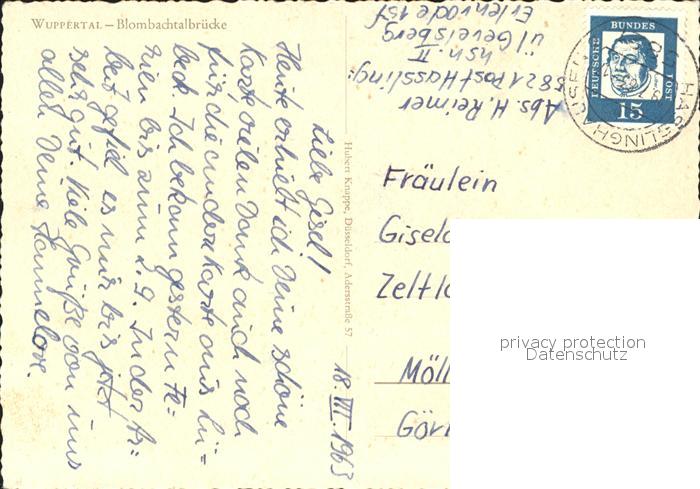 WUPPERTAL – Blombachtalbrücke
18. VII. 1963
Liebe Gisel!
Heute erhielt ich Deine schöne
Karte vielen Dank auch noch
für die andere Karte aus Lü=
beck. Ich bekam gestern Fe=
rien bis zum 2. 9. In der Ar=
beit gefiel es mir bis jetzt
sehr gut. Viele Grüße von uns
allen Deine Hannelore.
Hubert Knuppe, Düsseldorf, Adersstraße 57
Abs. H. Reimer
5821 Post Hassling:
hsn. II
ü/Gevelsberg
Erlenrode 15f
DEUTSCHE
BUNDES
POST
15
HASSLINGHAUSEN
Fräulein
Gisel
Zeltl
Möll
Gör
privacy protection
Datenschutz